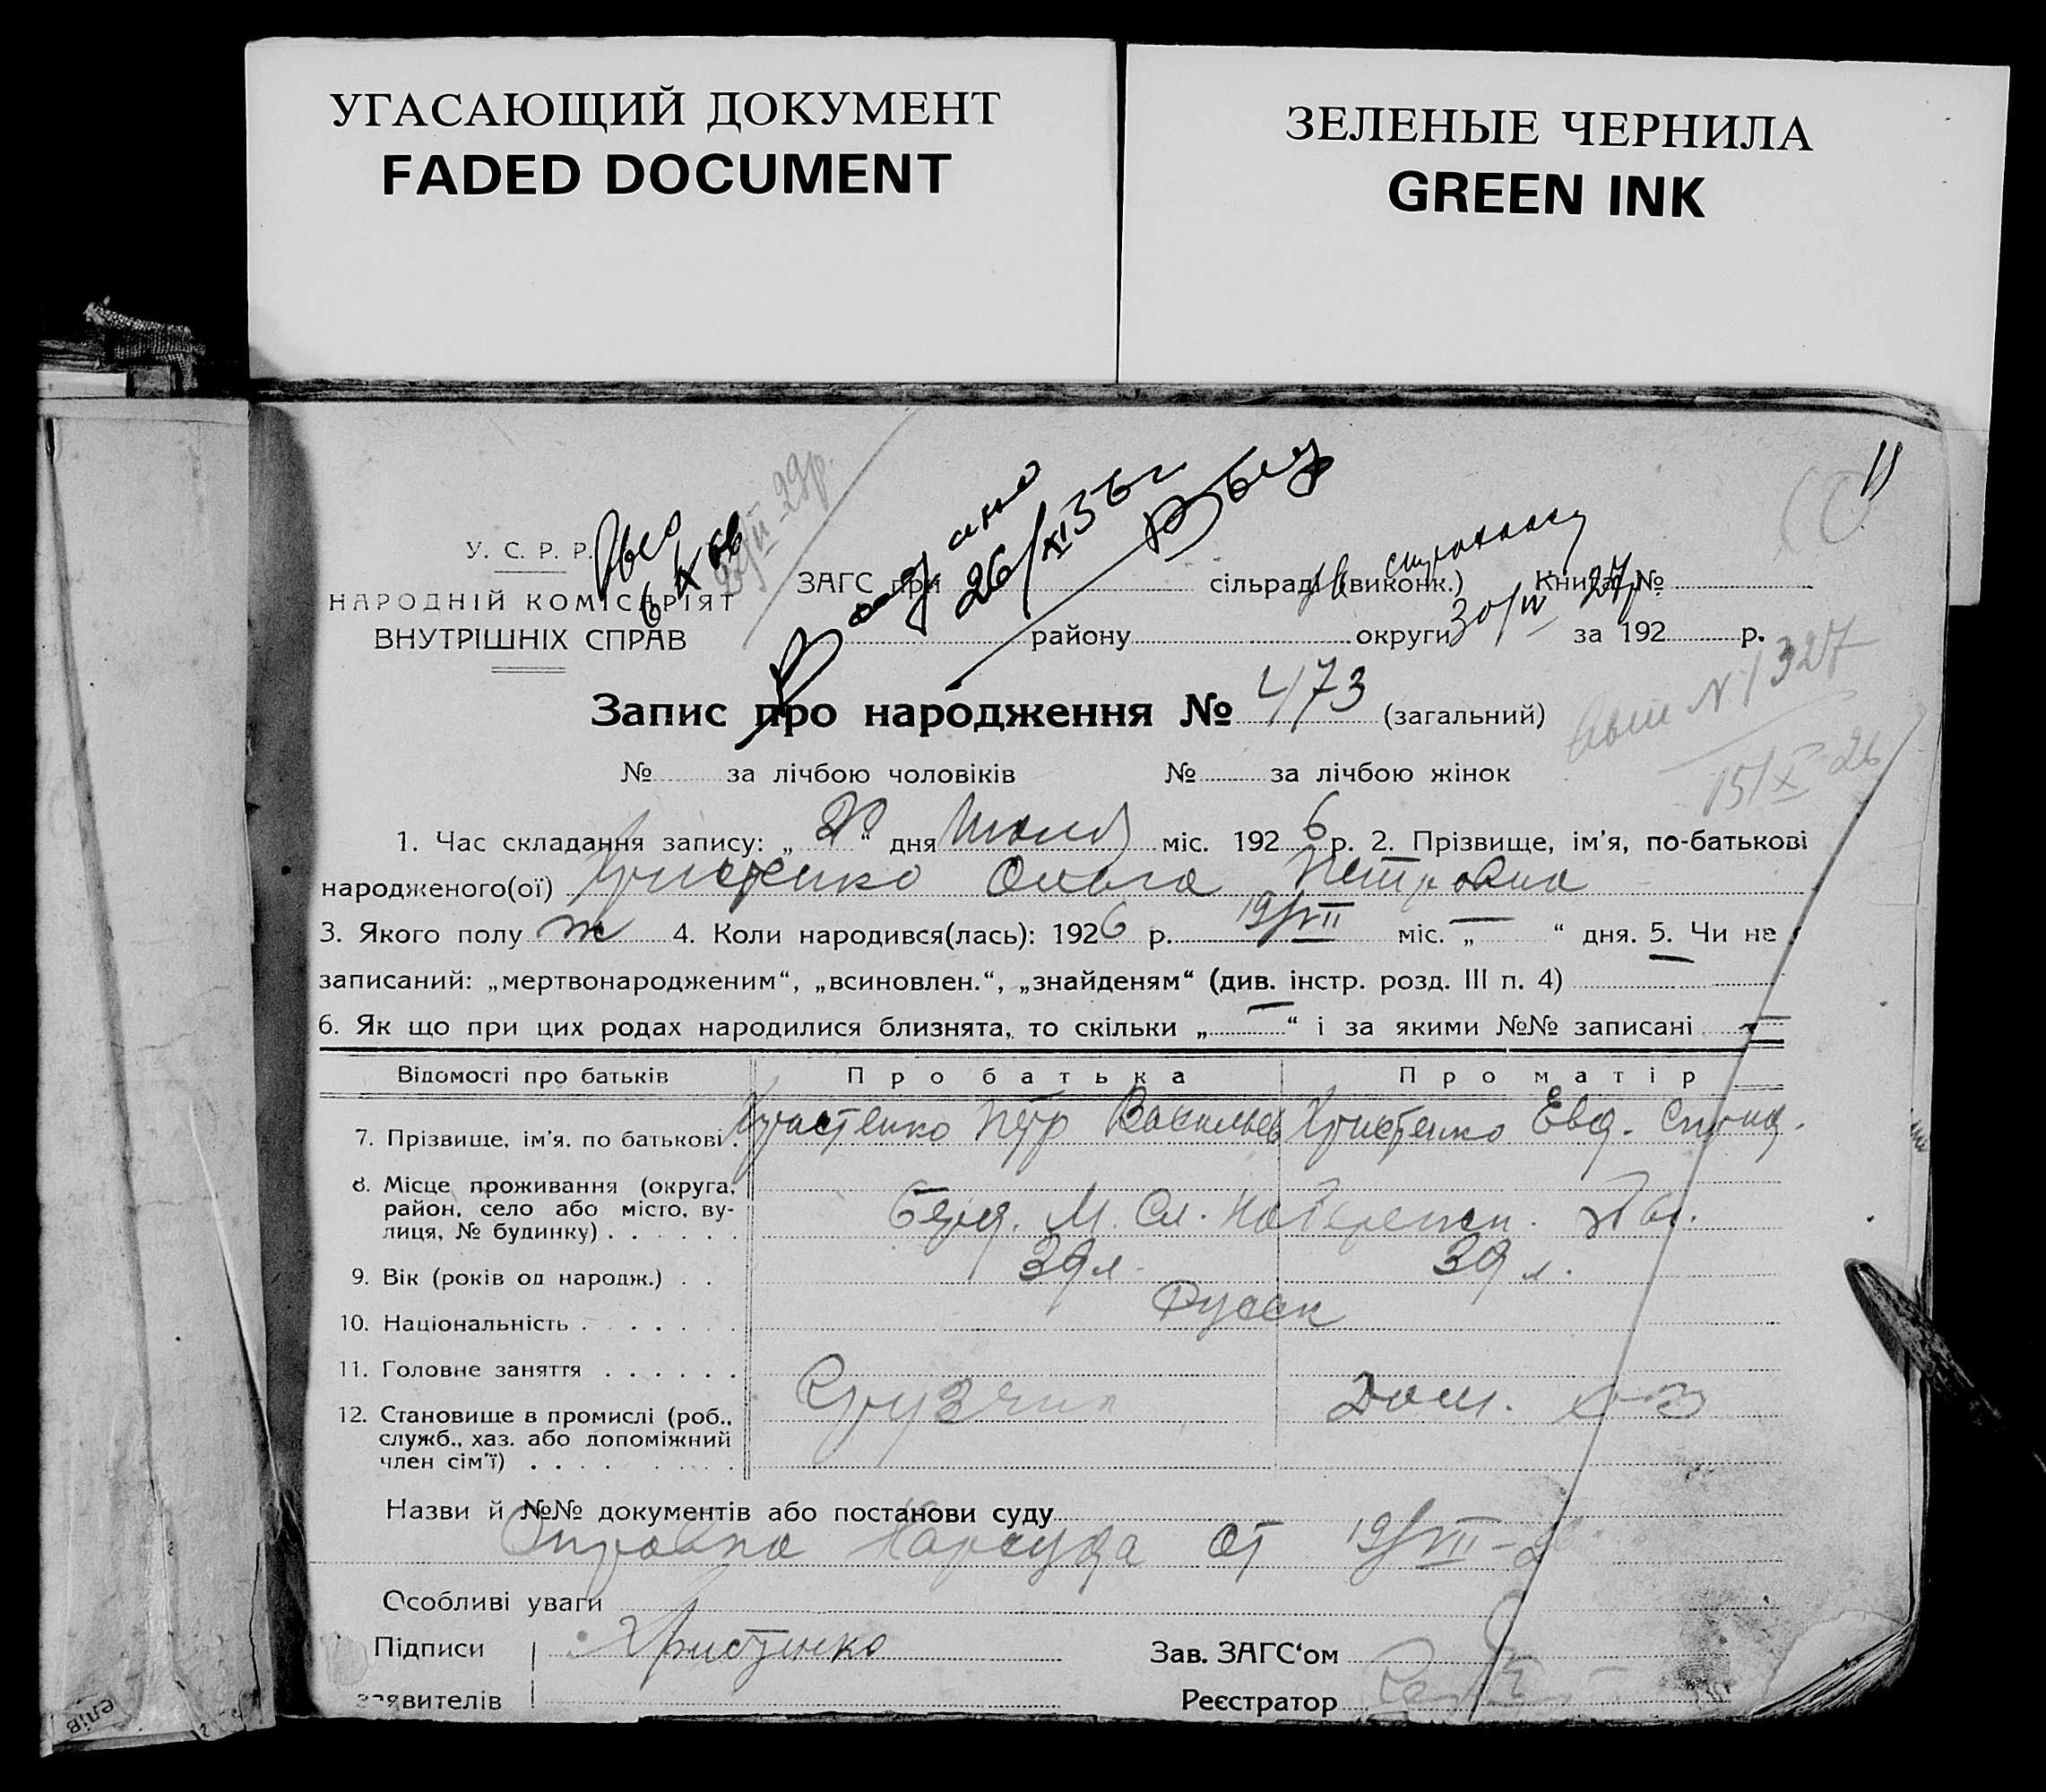 УГАСАЮЩИЙ ДОКУМЕНТ
FADED DOCUMENT
ЗЕЛЕНЫЕ ЧЕРНИЛА
GREEN INK
11
У. С. Р. Р.
НАРОДНІЙ КОМІСАРІЯТ
ВНУТРІШНІХ СПРАВ
29р.
26/XI 36г
ЗАГС при сільраді (виконк.) Книга №
району округи 30/IV 27р за 192 р.
Запис про народження № 473 (загальний)
№ 1327
15/X 26
№ за лічбою чоловіків № за лічбою жінок
1. Час складання запису: „ “ дня Июля міс. 1926 р. 2. Прізвище, ім'я, по-батькові
народженого(ої) Христенко Ольга Петровна
3. Якого полу ж 4. Коли народився(лась): 1926 р. 19/VII міс. „ — “ дня. 5. Чи не
записаний: „мертвонародженим“, „всиновлен.“, „знайденям“ (див. інстр. розд. III п. 4)
6. Як що при цих родах народилися близнята, то скільки „ — “ і за якими №№ записані —
Відомості про батьків Про батька Про матір
7. Прізвище, ім'я. по батькові. Христенко Петр Васильев Христенко Евд. Спирид.
8. Місце проживання (округа,
район, село або місто, ву-
лиця, № будинку) Берд. М. Сл. Набережн.
9. Вік (років од народж.) 39 л. 39 л.
10. Національність Русск
11. Головне заняття
Грузчик Дом. х-з
12. Становище в промислі (роб.,
служб., хаз. або допоміжний
член сім'ї)
Назви й №№ документів або постанови суду
Справка Нарсуда от 19/VII-2
Особливі уваги
Підписи Христенко Зав. ЗАГС‘ом
заявителів Реєстратор